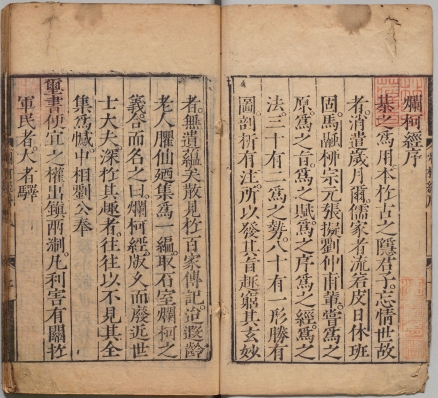 爛柯經序
棊之爲用本於古之隱君子忘情世故
者消遣歲月爾儒家者流若皮日休班
固馬融柳宗元張擬劉仲甫輩嘗爲之
原爲之旨爲之賦爲之序爲之經爲之
法三十有二爲之勢八十有一形勝有
圖剖析有注所以發其旨趣窮其玄妙
者無遺蘊矣散見於百家傳記迨遐齡
老人臞仙廼集爲一編取石室爛柯之
義合而名之曰爛柯經版久而廢近世
士大夫深於其趣者往往以不見其全
集爲憾中相劉公奉
璽書便宜之權出鎮兩浙凡利害有關於
軍民者大者驛